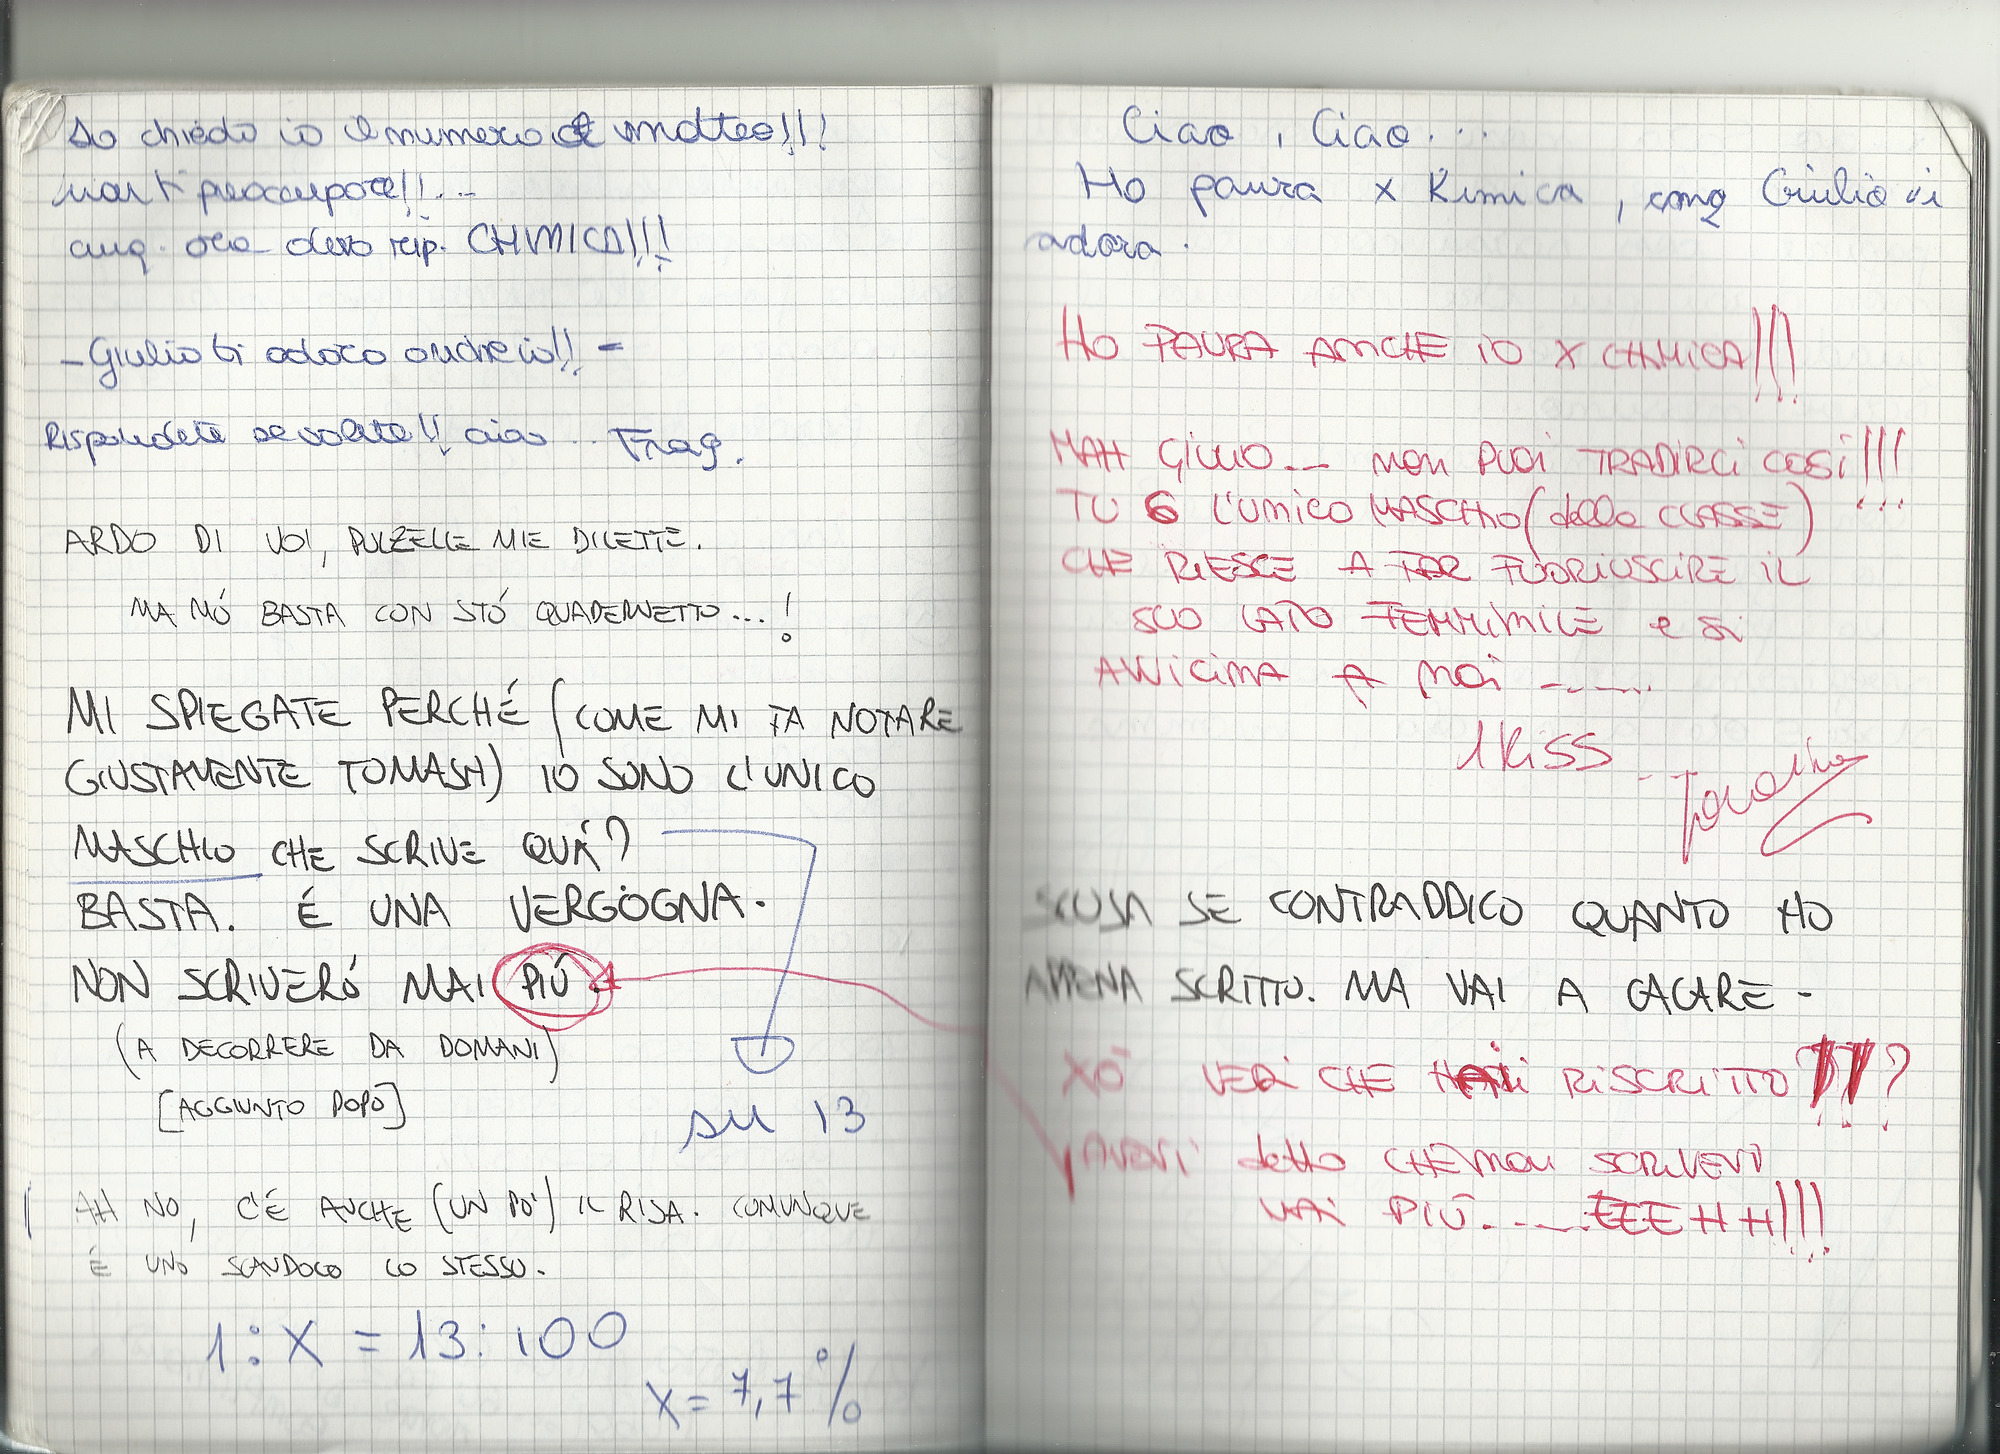 Lo chiedo io il numero di matteo!!!
non ti preoccupare!!...
cmq. ora devo rip. CHIMICA!!!
- Giulio ti adoro anche io!! -
Rispondete se volete!! ciao... Frag.
ARDO DI VOI, PULZELLE MIE DILETTE.
MA MÓ BASTA CON STÓ QUADERNETTO...!
MI SPIEGATE PERCHÉ (COME MI FA NOTARE
GIUSTAMENTE TOMASH) IO SONO L'UNICO
MASCHIO CHE SCRIVE QUÁ?
BASTA. É UNA VERGOGNA.
NON SCRIVERÓ MAI PIÚ.
(A DECORRERE DA DOMANI)
[AGGIUNTO DOPO]
su 13
AH NO, C'É ANCHE (UN PO') IL RISA. COMUNQUE
É UNO SCANDOLO LO STESSO.
1 : X = 13 : 100
X = 7,7 %
Ciao, Ciao...
Ho paura x Kimica, cmq Giulio vi
adora.
HO PAURA ANCHE IO X CHIMICA!!!
MAH GIULIO... non PUOI TRADIRCI COSÍ!!!
TU 6 L'UNICO MASCHIO (della CLASSE)
CHE RIESCE A FAR FUORIUSCIRE IL
SUO LATO FEMMINILE e SI
AVVICINA A NOI ......
1 KISS
SCUSA SE CONTRADDICO QUANTO HO
APPENA SCRITTO. MA VAI A CACARE -
XÓ VEDI CHE HAI RISCRITTO???
AVEVI detto CHE non SCRIVEVI
MAI PIÚ..... EEEHH!!!